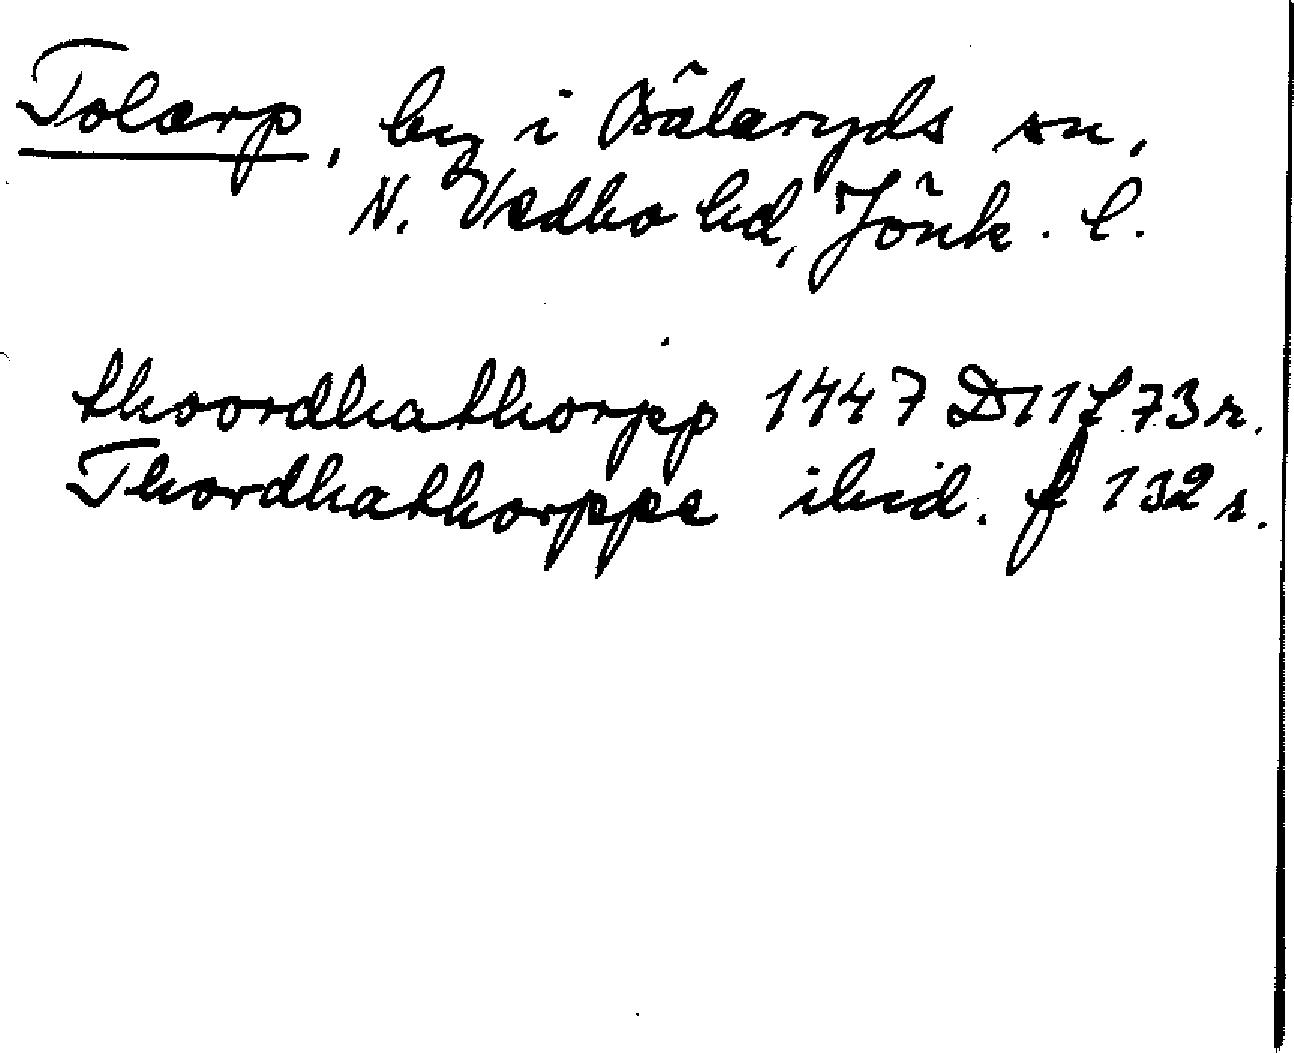 Tolarp, by i Bälaryds sn,
N. Vedbo hd, Jönk. l.
thoordhathorpp 1447 D 11 f 73 r.
Thordhathorppe ibid. f 132 r.